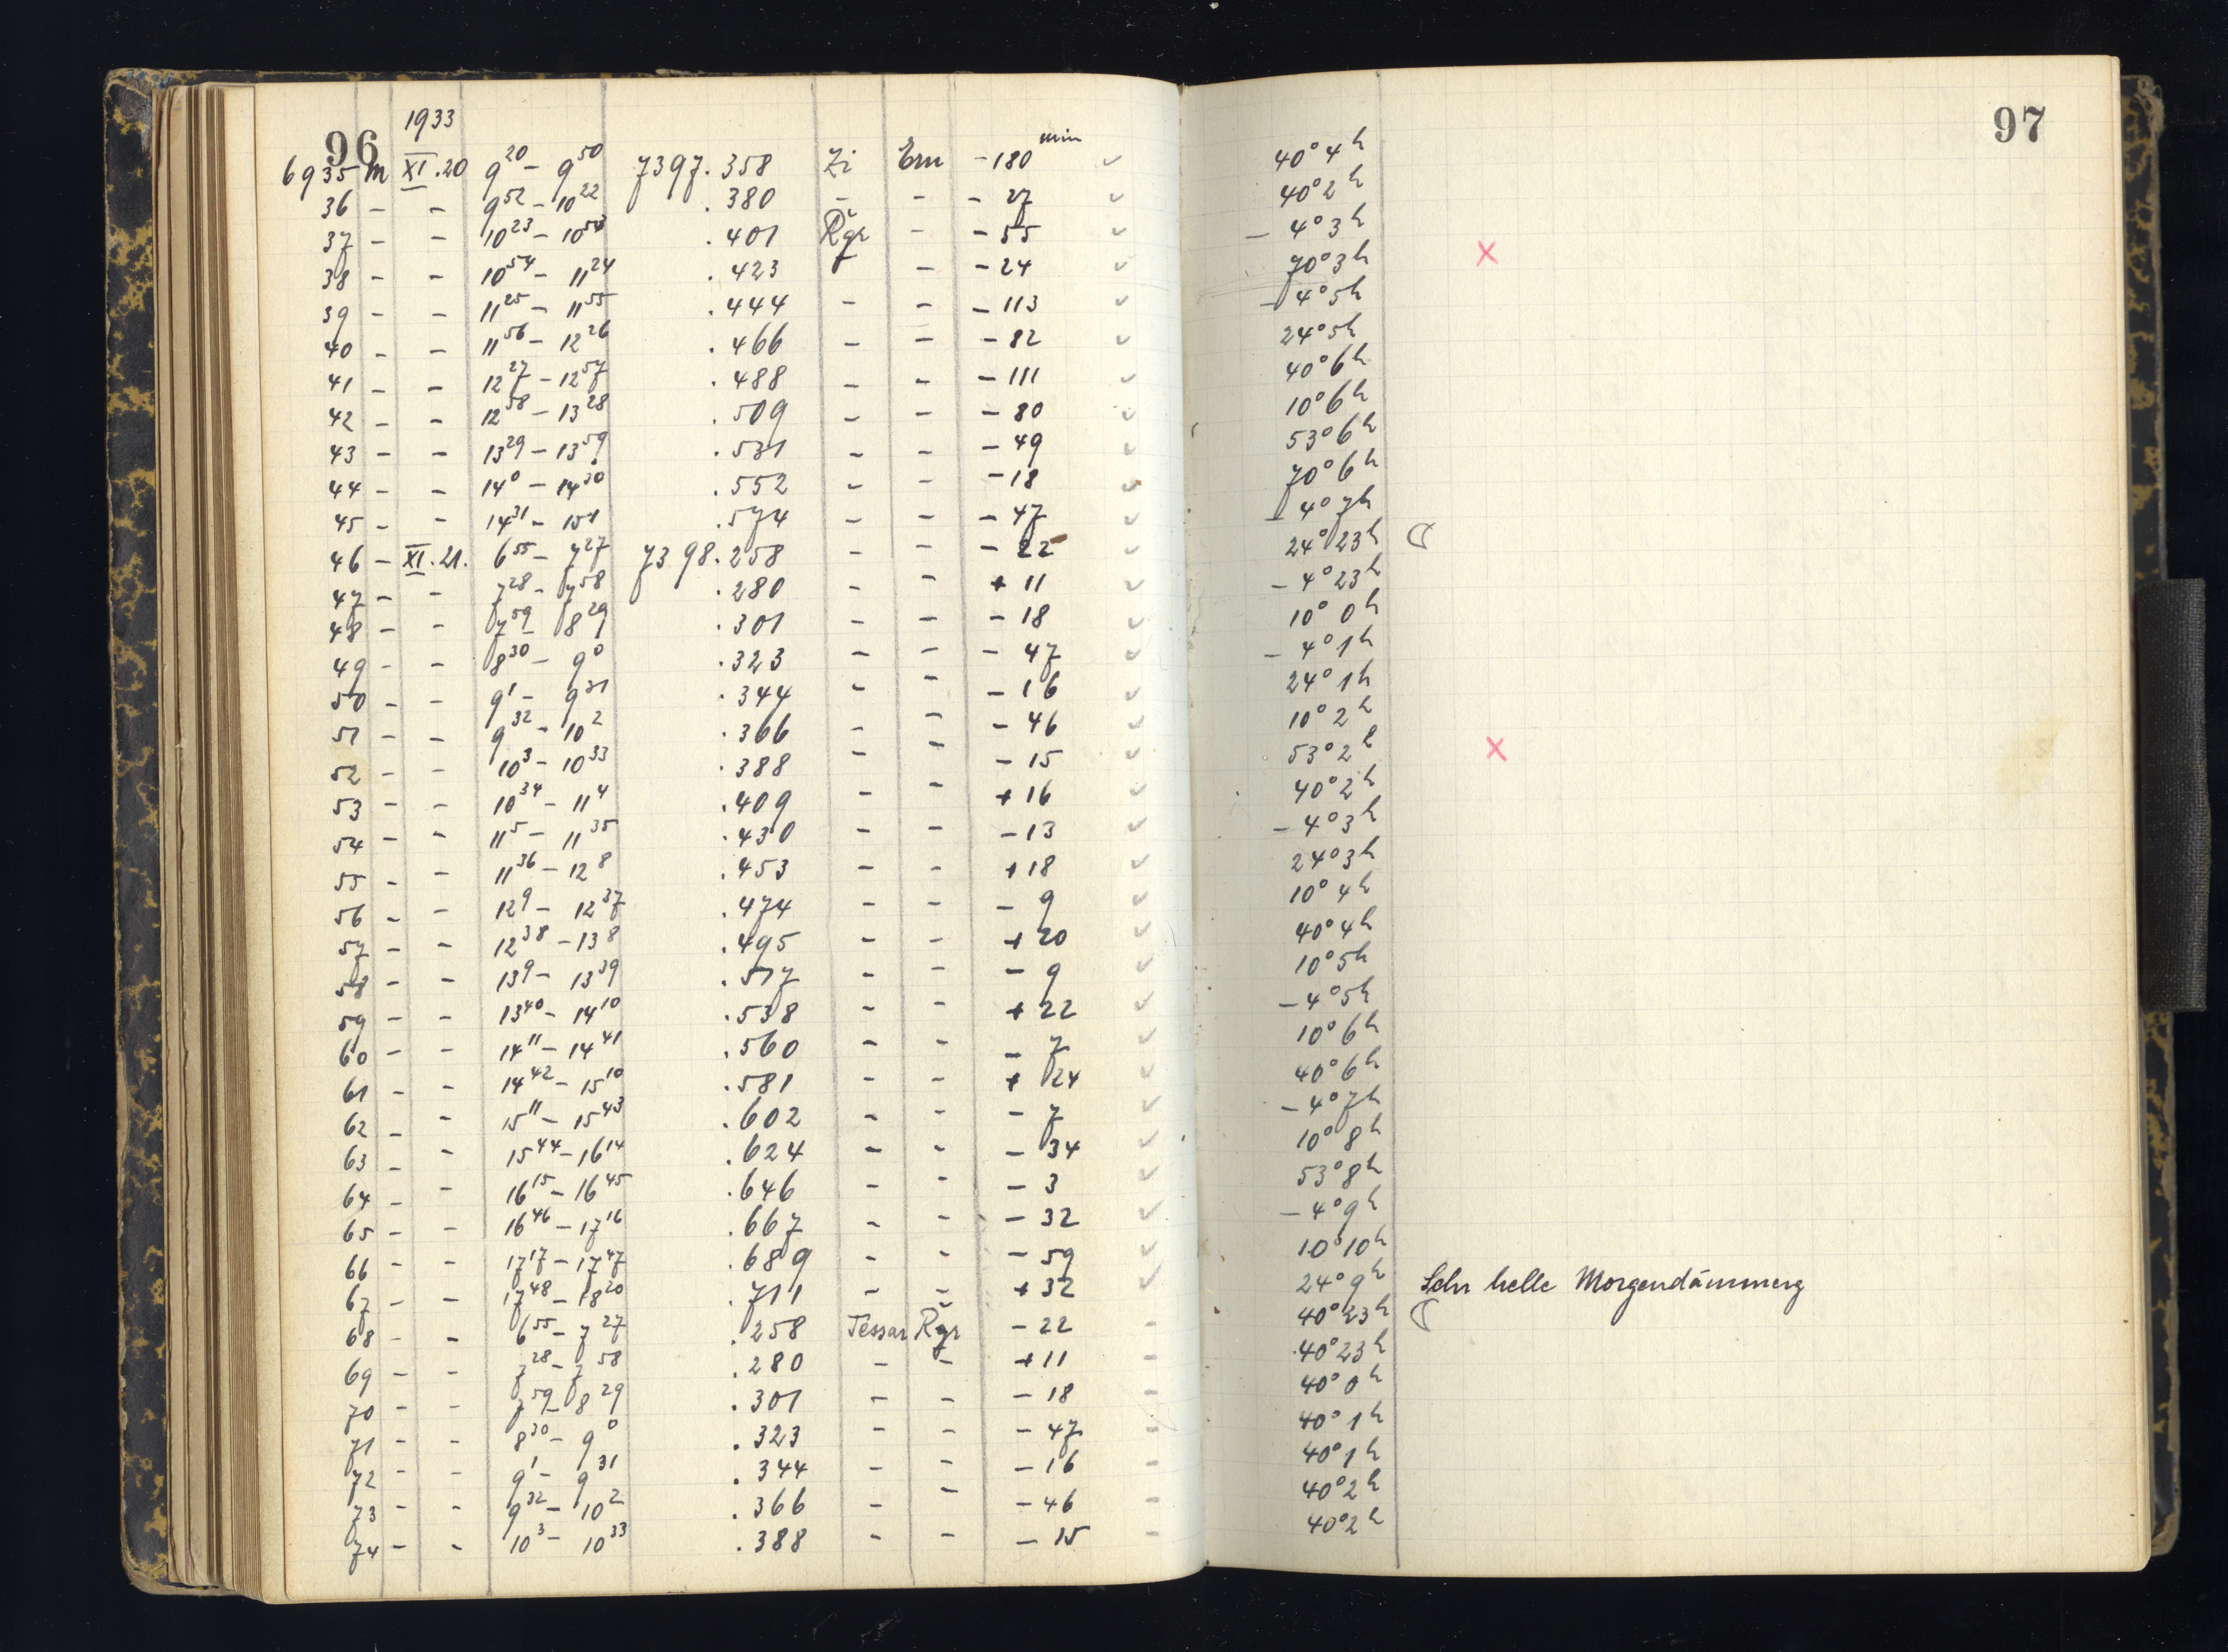 96
1933
97
6935 M XI.20 9²⁰ – 9⁵⁰ 7397.358 Zi Ern – 180 min ✓ 40° 4h
36 – – 9⁵² – 10²² .380 – – – 27 ✓ 40° 2h
37 – – 10²³ – 10⁵³ .401 Řgr – – 55 ✓ – 4° 3h
38 – – 10⁵⁴ – 11²⁴ .423 – – 24 ✓ 70° 3h ×
39 – – 11²⁵ – 11⁵⁵ .444 – – – 113 ✓ – 4° 5h
40 – – 11⁵⁶ – 12²⁶ .466 – – – 82 ✓ 24° 5h
41 – – 12²⁷ – 12⁵⁷ .488 – – – 111 ✓ 40° 6h
42 – – 12⁵⁸ – 13²⁸ .509 – – – 80 ✓ 10° 6h
43 – – 13²⁹ – 13⁵⁹ .531 – – – 49 ✓ 53° 6h
44 – – 14⁰ – 14³⁰ .552 – – – 18 ✓ 70° 6h
45 – – 14³¹ – 15¹ .574 – – – 47 ✓ – 4° 7h
46 – XI.21. 6⁵⁵ – 7²⁷ 7398.258 – – – 22 ✓ 24° 23h ☽
47 – – 7²⁸ – 7⁵⁸ .280 – – + 11 ✓ – 4° 23h
48 – – 7⁵⁹ – 8²⁹ .301 – – – 18 ✓ 10° 0h
49 – – 8³⁰ – 9⁰ .323 – – – 47 ✓ – 4° 1h
50 – – 9¹ – 9³¹ .344 – – – 16 ✓ 24° 1h
51 – – 9³² – 10² .366 – – – 46 ✓ 10° 2h
52 – – 10³ – 10³³ .388 – – – 15 ✓ 53° 2h ×
53 – – 10³⁴ – 11⁴ .409 – – + 16 ✓ 40° 2h
54 – – 11⁵ – 11³⁵ .430 – – – 13 ✓ – 4° 3h
55 – – 11³⁶ – 12⁸ .453 – – + 18 ✓ 24° 3h
56 – – 12⁹ – 12³⁷ .474 – – – 9 ✓ 10° 4h
57 – – 12³⁸ – 13⁸ .495 – – + 20 ✓ 40° 4h
58 – – 13⁹ – 13³⁹ .517 – – – 9 ✓ 10° 5h
59 – – 13⁴⁰ – 14¹⁰ .538 – – + 22 ✓ – 4° 5h
60 – – 14¹¹ – 14⁴¹ .560 – – – 7 ✓ 10° 6h
61 – – 14⁴² – 15¹⁰ .581 – – + 24 ✓ 40° 6h
62 – – 15¹¹ – 15⁴³ .602 – – – 7 ✓ – 4° 7h
63 – – 15⁴⁴ – 16¹⁴ .624 – – – 34 ✓ 10° 8h
64 – – 16¹⁵ – 16⁴⁵ .646 – – – 3 ✓ 53° 8h
65 – – 16⁴⁶ – 17¹⁶ .667 – – – 32 ✓ – 4° 9h
66 – – 17¹⁷ – 17⁴⁷ .689 – – – 59 ✓ 10° 10h
67 – – 17⁴⁸ – 18²⁰ .711 – – + 32 ✓ 24° 9h Sehr helle Morgendämmerg
68 – – 6⁵⁵ – 7²⁷ .258 Tessar Řgr – 22 – 40° 23h ☽
69 – – 7²⁸ – 7⁵⁸ .280 – – + 11 – 40° 23h
70 – – 7⁵⁹ – 8²⁹ .301 – – – 18 – 40° 0h
71 – – 8³⁰ – 9⁰ .323 – – – 47 – 40° 1h
72 – – 9¹ – 9³¹ .344 – – – 16 – 40° 1h
73 – – 9³² – 10² .366 – – – 46 – 40° 2h
74 – – 10³ – 10³³ .388 – – – 15 – 40° 2h